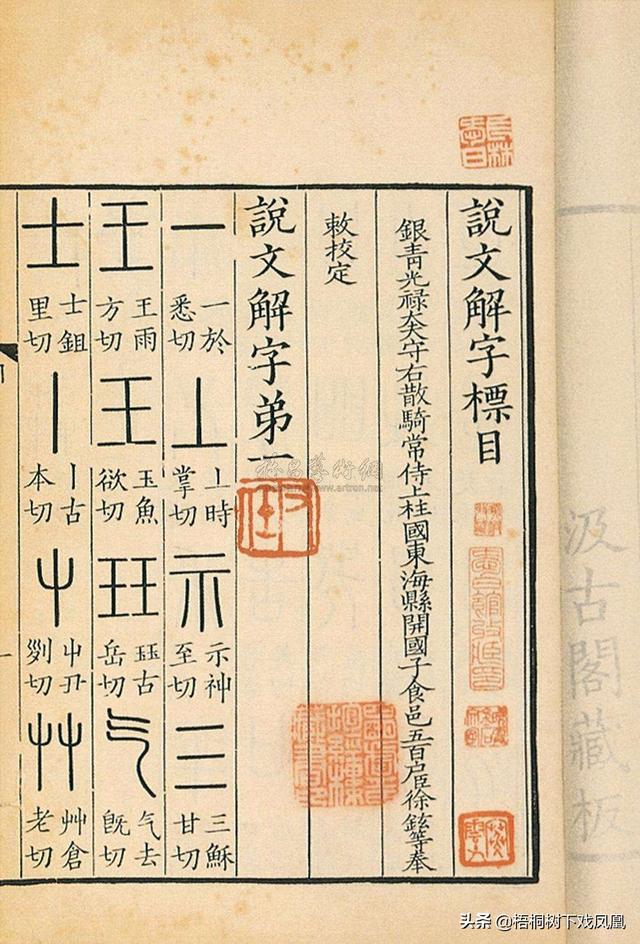 汲古閣藏板
說文解字標目
銀青光祿大夫守右散騎常侍上柱國東海縣開國子食邑五百户臣徐鉉等奉
敕校定
說文解字弟一
一 一於悉切 丄 丄時掌切 示 示神至切 三 三穌甘切
王 王雨方切 王 玉魚欲切 玨 玨古岳切 气 气去旣切
士 士鉏里切 丨 丨古本切 屮 屮丑列切 艸 艸倉老切
www.artron.net
头条 @梧桐树下戏凤凰